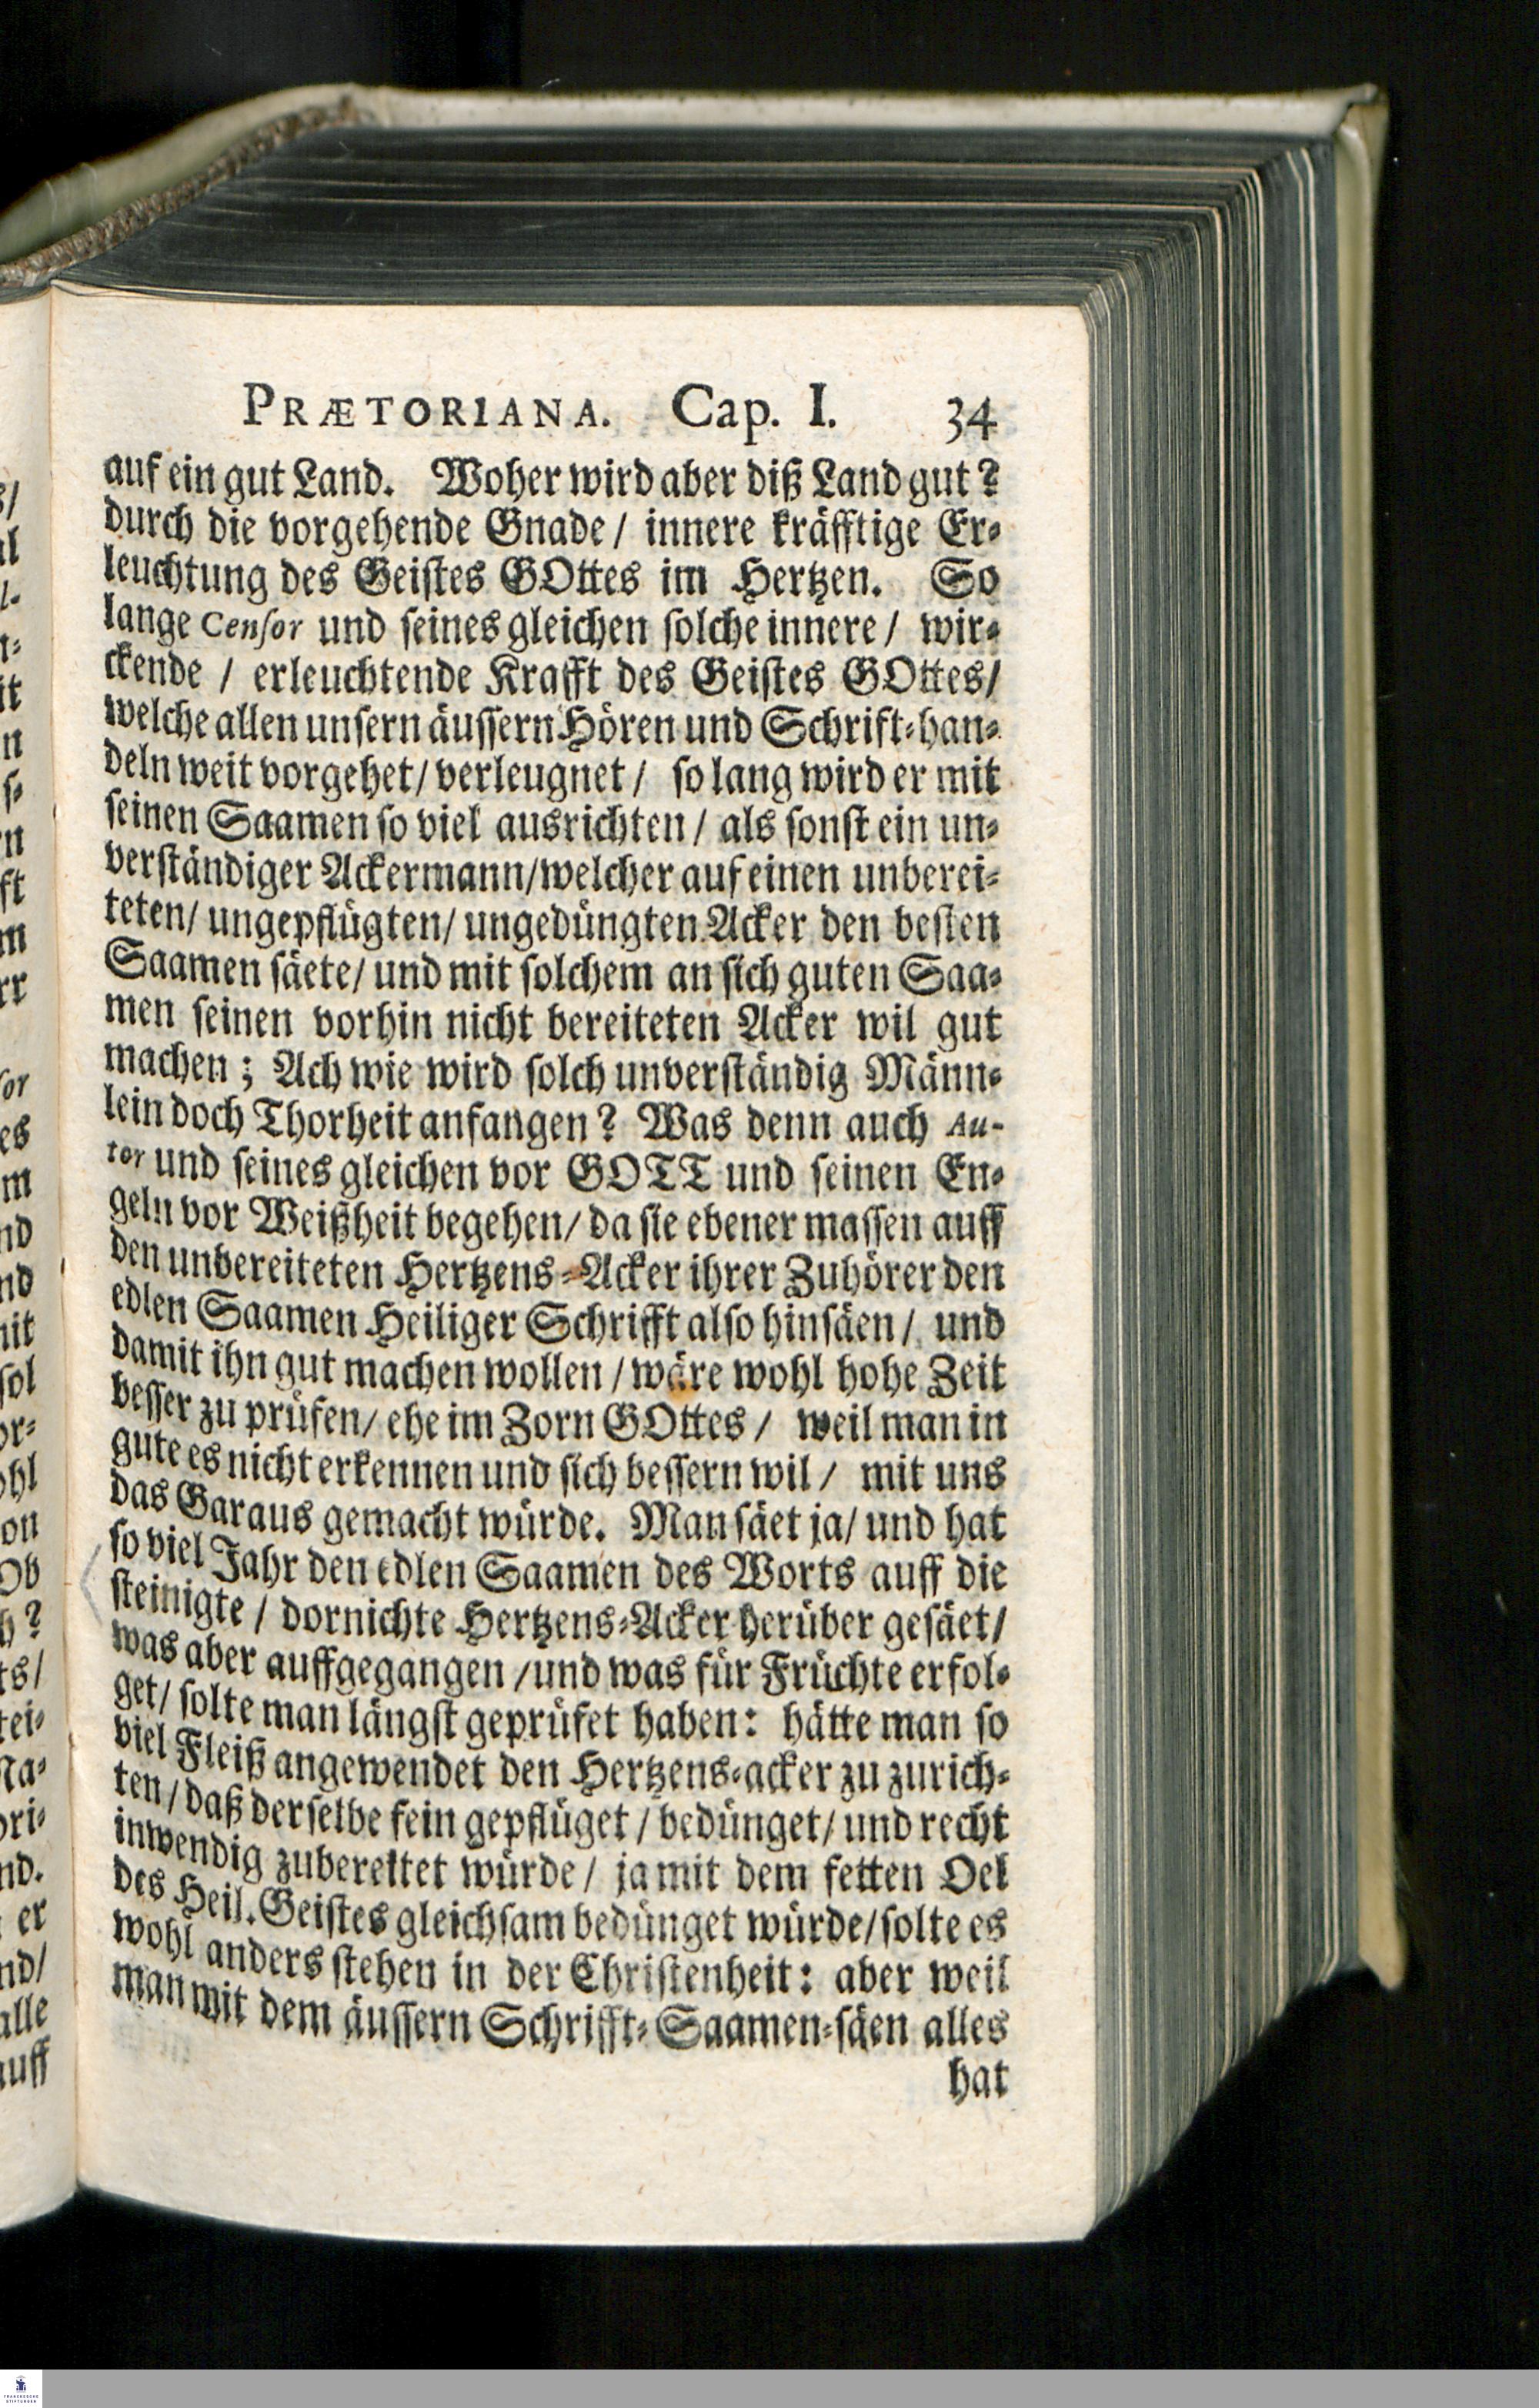 PRÆTORIANA. Cap. I. 34
auf ein gut Land. Woher wird aber diß Land gut?
durch die vorgehende Gnade/ innere kräfftige Er-
leuchtung des Geistes GOttes im Hertzen. So
lange Censor und seines gleichen solche innere/ wir-
ckende / erleuchtende Krafft des Geistes GOttes/
welche allen unsern äussern Hören und Schrift-han-
deln weit vorgehet/ verleugnet / so lang wird er mit
seinen Saamen so viel ausrichten / als sonst ein un-
verständiger Ackermann/welcher auf einen unberei-
teten/ ungepflügten/ ungedüngten Acker den besten
Saamen säete/ und mit solchem an sich guten Saa-
men seinen vorhin nicht bereiteten Acker wil gut
machen; Ach wie wird solch unverständig Männ-
lein doch Thorheit anfangen? Was denn auch Au-
tor und seines gleichen vor GOTT und seinen En-
geln vor Weißheit begehen/ da sie ebener massen auff
den unbereiteten Hertzens-Acker ihrer Zuhörer den
edlen Saamen Heiliger Schrifft also hinsäen /. und
damit ihn gut machen wollen / wäre wohl hohe Zeit
besser zu prüfen/ ehe im Zorn GOttes / weil man in
gute es nicht erkennen und sich bessern wil / mit uns
das Garaus gemacht würde. Man säet ja/ und hat
so viel Jahr den edlen Saamen des Worts auff die
steinigte / dornichte Hertzens-Acker herüber gesäet/
was aber auffgegangen /und was für Früchte erfol-
get/ solte man längst geprüfet haben: hätte man so
viel Fleiß angewendet den Hertzens-acker zu zurich-
ten/ daß derselbe fein gepflüget / bedünget/ und recht
inwendig zubereitet würde/ ja mit dem fetten Oel
des Heil. Geistes gleichsam bedünget würde/solte es
wohl anders stehen in der Christenheit: aber weil
man mit dem äussern Schrifft-Saamen-säen alles
hat